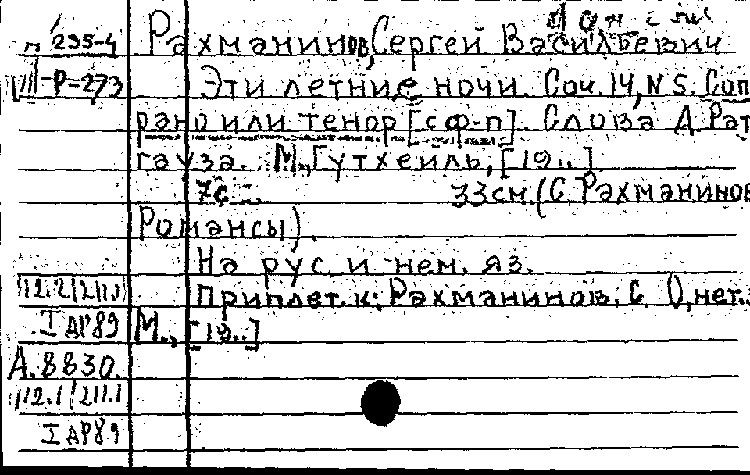 п 295-4 Рахманинов, Сергей Васильевич
VIII-Р-273 Эти летние ночи. Соч. 14, N 5. Соп
рано или тенор [с ф-п]. Слова Д. Рат
гауза. М., Гутхейль, [19..]
7с. 33 см. (С. Рахманинов
Романсы).
На рус. и нем. яз.
112.2/211.1 Приплет. к: Рахманинов, С. О, нет..
I АР89 М., [19..]
А.8830.
112.1/211.1
I АР89